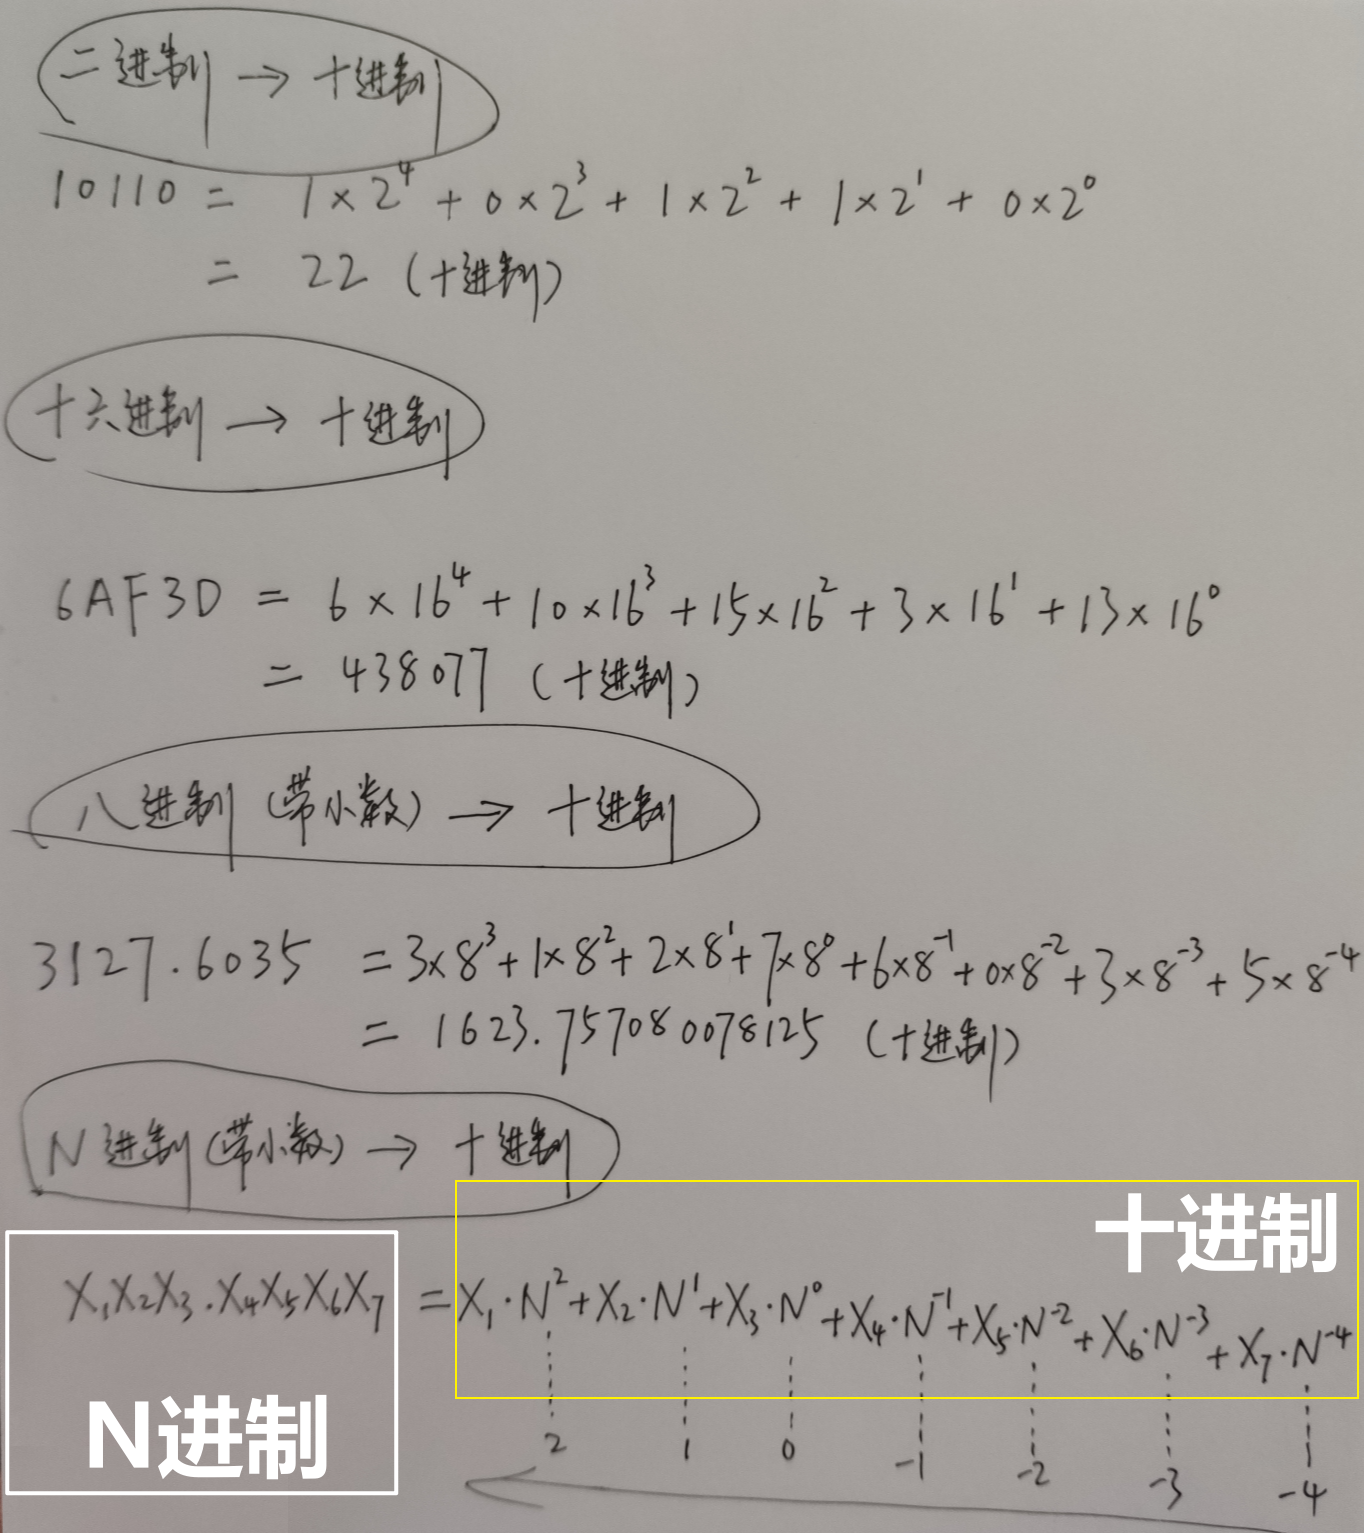 二进制 → 十进制
10110 = 1×2⁴ + 0×2³ + 1×2² + 1×2¹ + 0×2⁰
= 22 (十进制)
十六进制 → 十进制
6AF3D = 6×16⁴ + 10×16³ + 15×16² + 3×16¹ + 13×16⁰
= 438077 (十进制)
八进制 (带小数) → 十进制
3127.6035 = 3×8³ + 1×8² + 2×8¹ + 7×8⁰ + 6×8⁻¹ + 0×8⁻² + 3×8⁻³ + 5×8⁻⁴
= 1623.757080078125 (十进制)
N进制(带小数) → 十进制
十进制
X₁X₂X₃.X₄X₅X₆X₇ = X₁·N² + X₂·N¹ + X₃·N⁰ + X₄·N⁻¹ + X₅·N⁻² + X₆·N⁻³ + X₇·N⁻⁴
N进制
2 1 0 -1 -2 -3 -4